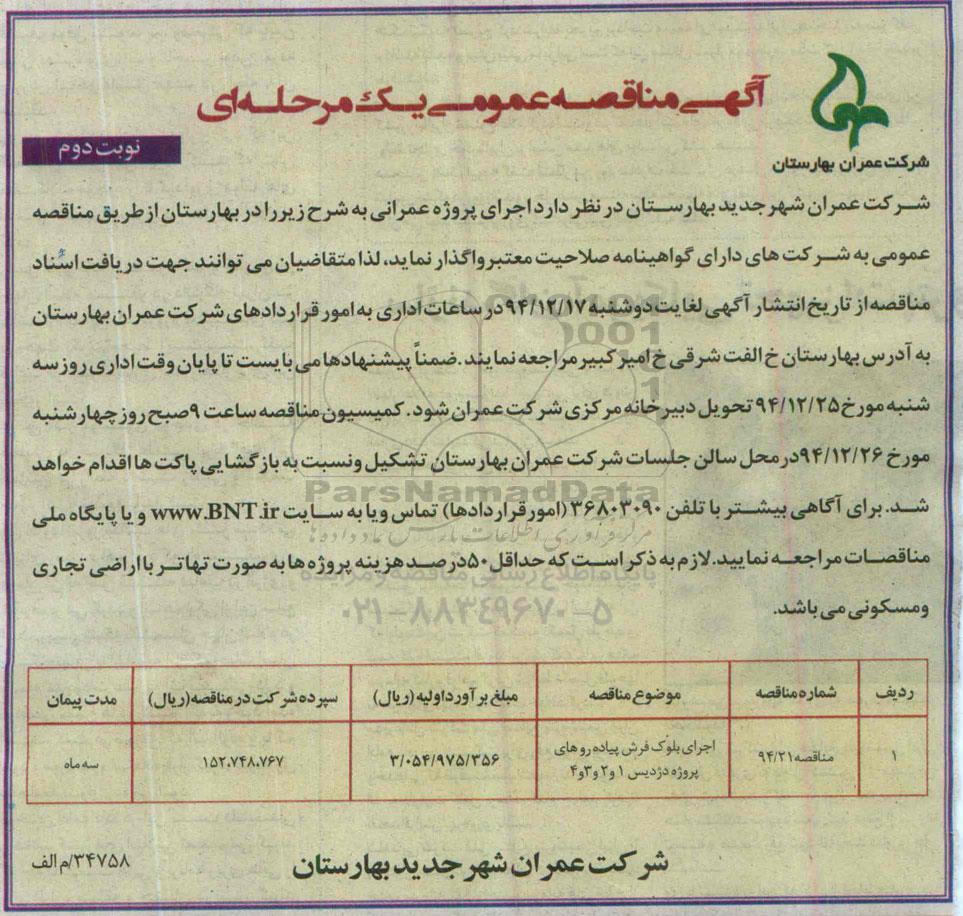 آگهی مناقصه عمومی یک مرحله ای
شرکت عمران بهارستان
نوبت دوم
شرکت عمران شهر جدید بهارستان در نظر دارد اجرای پروژه عمرانی به شرح زیر را در بهارستان از طریق مناقصه
عمومی به شرکت های دارای گواهینامه صلاحیت معتبر واگذار نماید، لذا متقاضیان می توانند جهت دریافت اسناد
مناقصه از تاریخ انتشار آگهی لغایت دوشنبه ۹۴/۱۲/۱۷ در ساعات اداری به امور قراردادهای شرکت عمران بهارستان
به آدرس بهارستان خ الفت شرقی خ امیر کبیر مراجعه نمایند. ضمناً پیشنهادها می بایست تا پایان وقت اداری روز سه
شنبه مورخ ۹۴/۱۲/۲۵ تحویل دبیرخانه مرکزی شرکت عمران شود. کمیسیون مناقصه ساعت ۹ صبح روز چهارشنبه
مورخ ۹۴/۱۲/۲۶ در محل سالن جلسات شرکت عمران بهارستان تشکیل ونسبت به بازگشایی پاکت ها اقدام خواهد
شد. برای آگاهی بیشتر با تلفن ۳۶۸۰۳۰۹۰ (امور قراردادها) تماس ویا به سایت www.BNT.ir و یا پایگاه ملی
مناقصات مراجعه نمایید. لازم به ذکر است که حداقل ۵۰ درصد هزینه پروژه ها به صورت تهاتر با اراضی تجاری
ومسکونی می باشد.
ParsNamadData
مرکز فرآوری اطلاعات پارس نماد داده ها
پایگاه اطلاع رسانی مناقصه و مزایده
۰۲۱-۸۸۳۴۹۶۷۰-۵
ردیف شماره مناقصه موضوع مناقصه مبلغ برآورد اولیه (ریال) سپرده شرکت در مناقصه (ریال) مدت پیمان
۱ مناقصه ۹۴/۲۱ اجرای بلوک فرش پیاده رو های پروژه دژدیس ۱ و ۲ و ۳ و ۴ ۳/۰۵۴/۹۷۵/۳۵۶ ۱۵۲،۷۴۸،۷۶۷ سه ماه
شرکت عمران شهر جدید بهارستان
۳۴۷۵۸/م الف